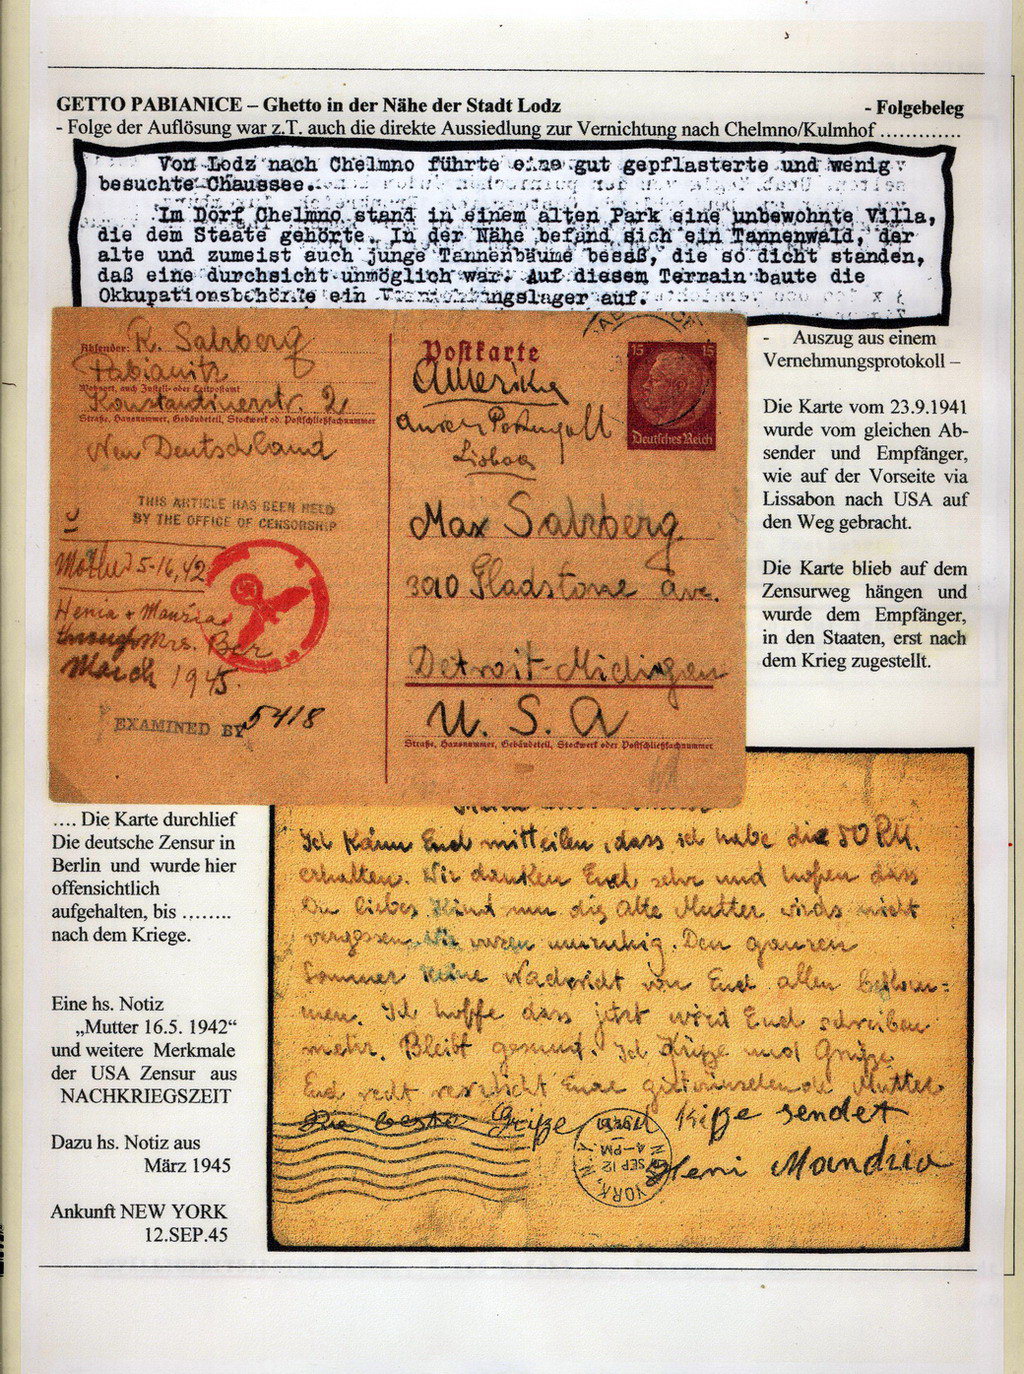 GETTO PABIANICE – Ghetto in der Nähe der Stadt Lodz - Folgebeleg
- Folge der Auflösung war z.T. auch die direkte Aussiedlung zur Vernichtung nach Chelmno/Kulmhof ..............
Von Lodz nach Chelmno führte eine gut gepflasterte und wenig
besuchte Chaussee.
Im Dorf Chelmno stand in einem alten Park eine unbewohnte Villa,
die dem Staate gehörte. In der Nähe befand sich ein Tannenwald, der
alte und zumeist auch junge Tannenbäume besaß, die so dicht standen,
daß eine durchsicht unmöglich war. Auf diesem Terrain baute die
Okkupationsbehörde ein Vernichtungslager auf.
- Auszug aus einem
Vernehmungsprotokoll –
Die Karte vom 23.9.1941
wurde vom gleichen Ab-
sender und Empfänger,
wie auf der Vorseite via
Lissabon nach USA auf
den Weg gebracht.
Die Karte blieb auf dem
Zensurweg hängen und
wurde dem Empfänger,
in den Staaten, erst nach
dem Krieg zugestellt.
Absender: R. Salzberg
Pabianitz
Wohnort, auch Zustell- oder Leitpostamt
Konstantinerstr. 21
Straße, Hausnummer, Gebäudeteil, Stockwerk od. Postschließfachnummer
Neu Deutschland
THIS ARTICLE HAS BEEN HELD
BY THE OFFICE OF CENSORSHIP
Mother 5-16, 42
Henia + Mania
through Mrs. Ber
March 1945.
EXAMINED BY 5418
Postkarte
Amerika
15 15
Deutsches Reich
Portugall
Lisboa
Max Salzberg
3010 Gladstone ave.
Detroit-Michigan
U. S. A
Straße, Hausnummer, Gebäudeteil, Stockwerk oder Postschließfachnummer
.... Die Karte durchlief
Die deutsche Zensur in
Berlin und wurde hier
offensichtlich
aufgehalten, bis ........
nach dem Kriege.
Eine hs. Notiz
„Mutter 16.5. 1942“
und weitere Merkmale
der USA Zensur aus
NACHKRIEGSZEIT
Dazu hs. Notiz aus
März 1945
Ankunft NEW YORK
12.SEP.45
Ich kann Euch mitteilen, dass ich habe die 50 RM.
erhalten. Wir danken Euch sehr und hofen dass
Du liebes Kind nun die Alte Mutter wirds nicht
vergessen. Wir waren unruhig. Den ganzen
Sommer keine Nachricht von Euch allen bekom=
men. Ich hoffe dass jetzt wird Euch schreiben
mehr. Bleibt gesund. Ich Küsse und Grüsse
Euch recht herzlicht Eure Mutter
Die beste Grüsse und Küsse sendet
Heni Mandzia
YORK, N.Y.
SEP 12
4-PM
1945